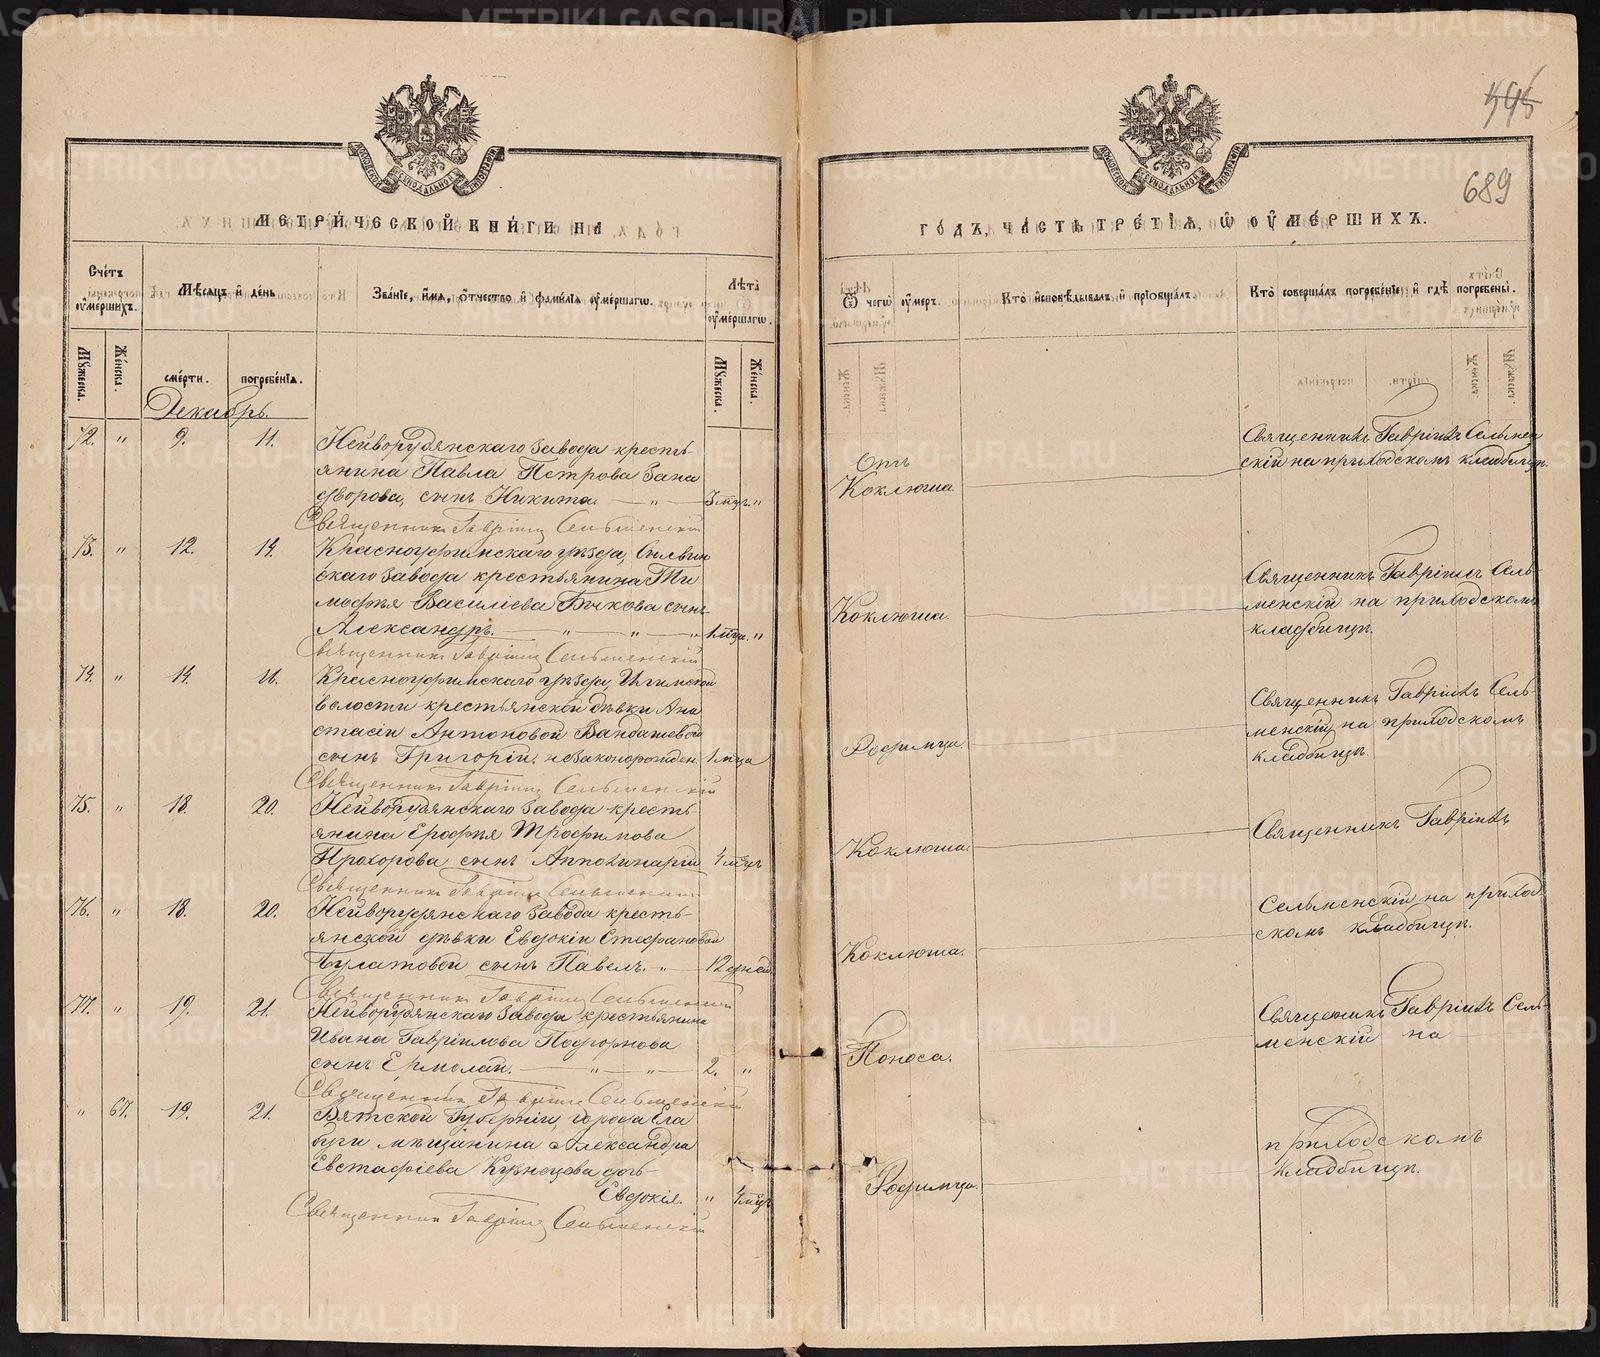 595
689
МЕТРИ́ЧЕСКОЙ КНИ́ГИ НА
ГО́ДЪ, ЧА́СТЬ ТРЕ́ТІЯ, Ѿ ОУМЕ́РШИХЪ.
Счетъ оумершихъ.
Мѣсяцъ и день
Званіе, имя, отчество и фамилія оумершагѡ.
Лѣта оумершагѡ.
Ѿ чегѡ оумеръ.
Кто исповѣдывалъ и пріобщалъ.
Кто совершалъ погребеніе и гдѣ погребены.
Мужеска.
Женска.
смерти.
погребенія.
Мужеска.
Женска.
Декабрь.
72. " 9. 11. Нейворудянскаго завода кресть-
янина Павла Петрова Запа
дворова, сынъ Никита. — " — 3 мѣц. "
Священникъ Гавріилъ Сельменскій
Отъ
Коклюша.
Священникъ Гавріилъ Сельмен
скій на приходскомъ кладбищѣ.
73. " 12. 14. Красноуфимскаго уѣзда, Сылвин
скаго завода крестьянина Ти
мофея Василіева Бычкова сынъ
Александръ. — " — " — " 1 мѣц. "
Священникъ Гавріилъ Сельменскій
Коклюша.
Священникъ Гавріилъ Сель-
менскій на приходскомъ
кладбищѣ.
74. " 14. Красноуфимскаго уѣзда,
волости крестьянской дѣвки Ана
стасіи Антоновой
сынъ Григорій, незаконорожден. 1 мѣца
Священникъ Гавріилъ Сельменскій
Родимца.
Священникъ Гавріилъ Сель-
менскій на приходскомъ
кладбищѣ.
75. " 18. 20. Нейворудянскаго завода кресть-
янина Ерофея Трофимова
Прохорова сынъ Апполинарій 4 мѣц.
Священникъ Гавріилъ Сельменскій
Коклюша.
Священникъ Гавріилъ
76. " 18. 20. Нейворудянскаго завода кресть-
янской дѣвки Евдокіи Стефановой
Булатовой сынъ Павелъ. " — 12 дней
Священникъ Гавріилъ Сельменскій
Коклюша.
Сельменскій на приход
скомъ кладбищѣ.
77. " 19. 21. Нейворудянскаго завода крестьянина
Ивана Гавріилова Подорнова
сынъ Ермолай. — " — " — 2. "
Священникъ Гавріилъ Сельменскій
Поноса.
Священникъ Гавріилъ Сель-
менскій на
" 67. 19. 21. Вятской Губерніи, города Ела
буги мѣщанина Александра
Евстафіева Кузнецова дочь
Евдокія. " 4 мѣц.
Священникъ Гавріилъ Сельменскій
Родимца.
приходскомъ
кладбищѣ.
METRIKI.GASO-URAL.RU